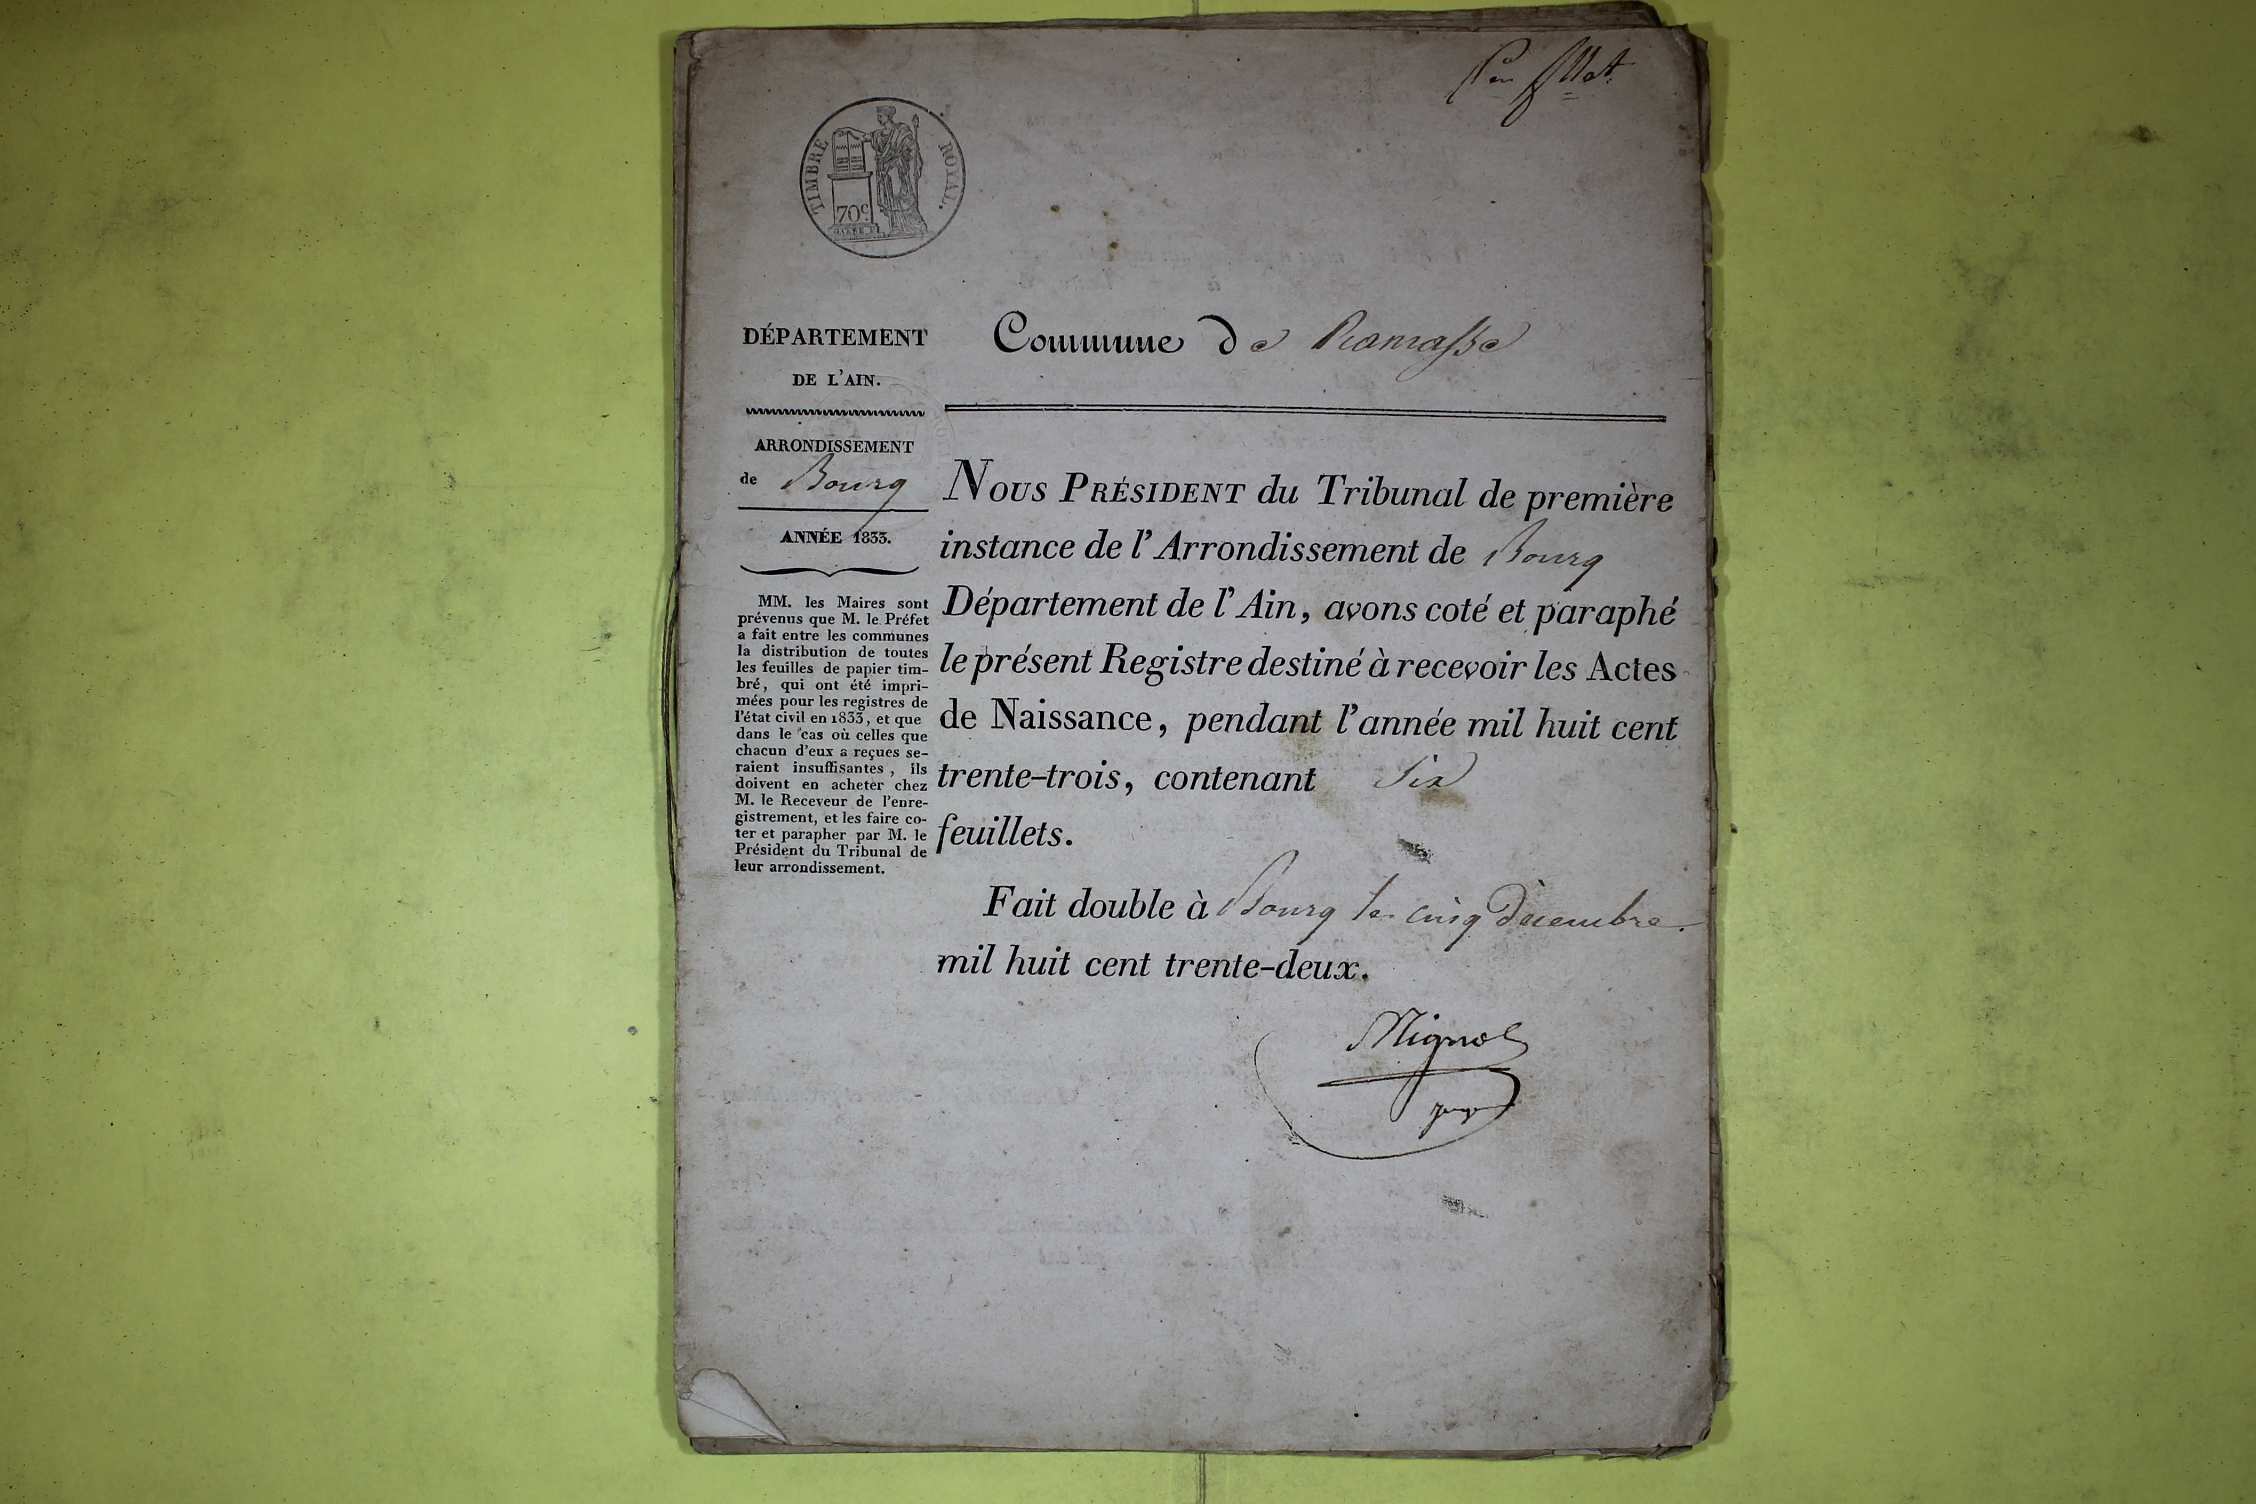 TIMBRE ROYAL.
70c
DÉPARTEMENT
DE L'AIN.
Commune de Ramasse
ARRONDISSEMENT
de Bourg
ANNÉE 1833.
MM. les Maires sont
prévenus que M. le Préfet
a fait entre les communes
la distribution de toutes
les feuilles de papier tim-
bré, qui ont été impri-
mées pour les registres de
l'état civil en 1833, et que
dans le cas où celles que
chacun d'eux a reçues se-
raient insuffisantes, ils
doivent en acheter chez
M. le Receveur de l'enre-
gistrement, et les faire co-
ter et parapher par M. le
Président du Tribunal de
leur arrondissement.
NOUS PRÉSIDENT du Tribunal de première
instance de l'Arrondissement de Bourg
Département de l'Ain, avons coté et paraphé
le présent Registre destiné à recevoir les Actes
de Naissance, pendant l'année mil huit cent
trente-trois, contenant Six
feuillets.
Fait double à Bourg le cinq Décembre
mil huit cent trente-deux.